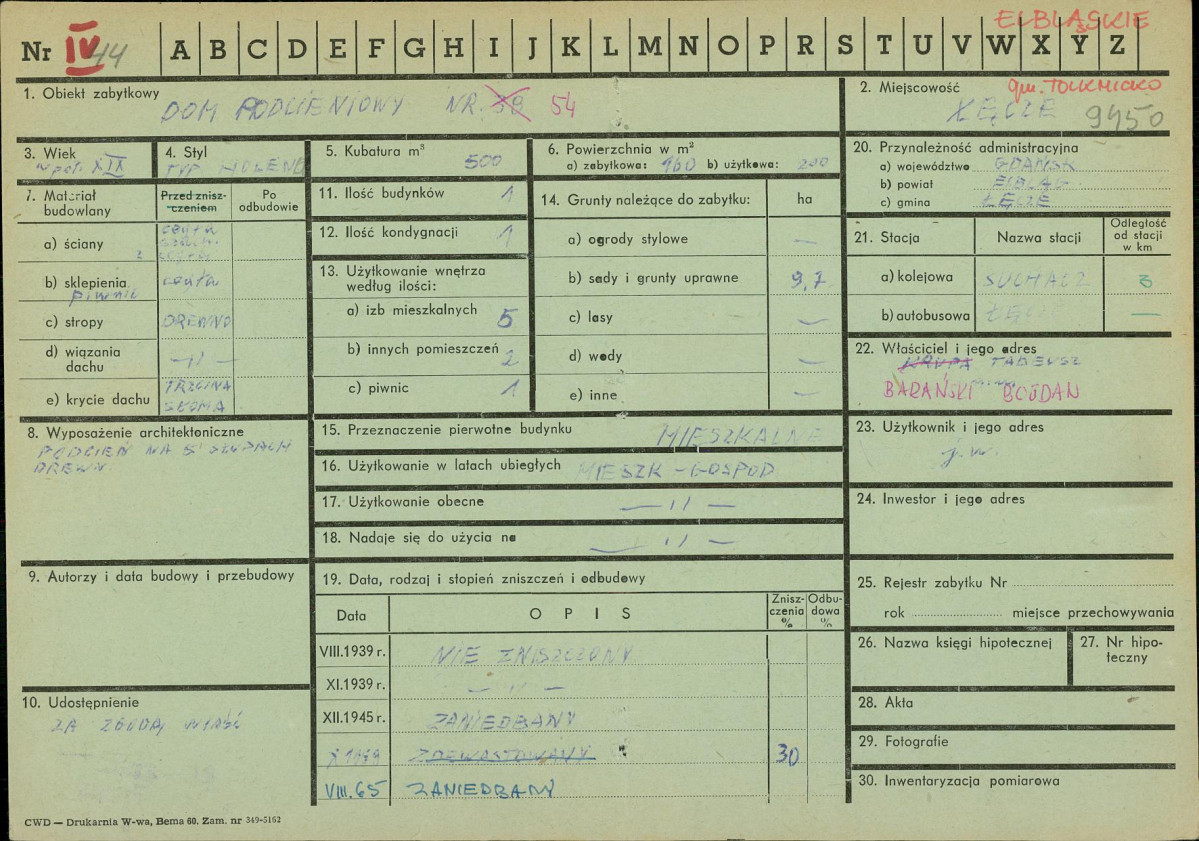 ELBLĄSKIE
Nr IV 44 A B C D E F G H I J K L M N O P R S T U V W X Y Z
1. Obiekt zabytkowy
DOM PODCIENIOWY NR. 38 54
2. Miejscowość
gm. TOLKMICKO
ŁĘCZE 9450
3. Wiek
XIX
4. Styl
TYP HOLEND
5. Kubatura m³ 500
6. Powierzchnia w m²
a) zabytkowa: 160 b) użytkowa: 200
7. Materiał budowlany
Przed zniszczeniem
Po odbudowie
a) ściany
cegła
b) sklepienia cegła
piwnic
c) stropy DREWNO
d) wiązania dachu —〃—
e) krycie dachu
TRZCINA
SŁOMA
8. Wyposażenie architektoniczne
PODCIEŃ NA 5 SŁUPACH
DREWN.
9. Autorzy i data budowy i przebudowy
10. Udostępnienie
ZA ZGODĄ WŁAŚC
11. Ilość budynków 1
12. Ilość kondygnacji 1
13. Użytkowanie wnętrza
według ilości:
a) izb mieszkalnych 5
b) innych pomieszczeń 2
c) piwnic 1
14. Grunty należące do zabytku: ha
a) ogrody stylowe —
b) sady i grunty uprawne 9,7
c) lasy —
d) wody —
e) inne —
15. Przeznaczenie pierwotne budynku MIESZKALNE
16. Użytkowanie w latach ubiegłych MIESZK-GOSPOD
17. Użytkowanie obecne —〃—
18. Nadaje się do użycia na —〃—
19. Data, rodzaj i stopień zniszczeń i odbudowy
Data
O P I S
Zniszczenia %
Odbudowa %
VIII.1939 r. NIE ZNISZCZONY
XI.1939 r. —〃—
XII.1945 r. ZANIEDBANY
ZDEWASTOWANY 30
VIII.65 ZANIEDBANY
20. Przynależność administracyjna
a) województwo GDAŃSK
b) powiat ELBLĄG
c) gmina ŁĘCZE
21. Stacja
Nazwa stacji
Odległość
od stacji
w km
a) kolejowa SUCHACZ 3
b) autobusowa ŁĘCZE —
22. Właściciel i jego adres
KRUPA TADEUSZ
BARAŃSKI BOGDAN
23. Użytkownik i jego adres
j.w.
24. Inwestor i jego adres
25. Rejestr zabytku Nr
rok miejsce przechowywania
26. Nazwa księgi hipotecznej
27. Nr hipoteczny
28. Akta
29. Fotografie
30. Inwentaryzacja pomiarowa
CWD — Drukarnia W-wa, Bema 60. Zam. nr 349-5162